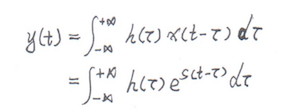 y(t) = ∫_{-∞}^{+∞} h(τ) x(t-τ) dτ
= ∫_{-∞}^{+∞} h(τ) e^{s(t-τ)} dτ